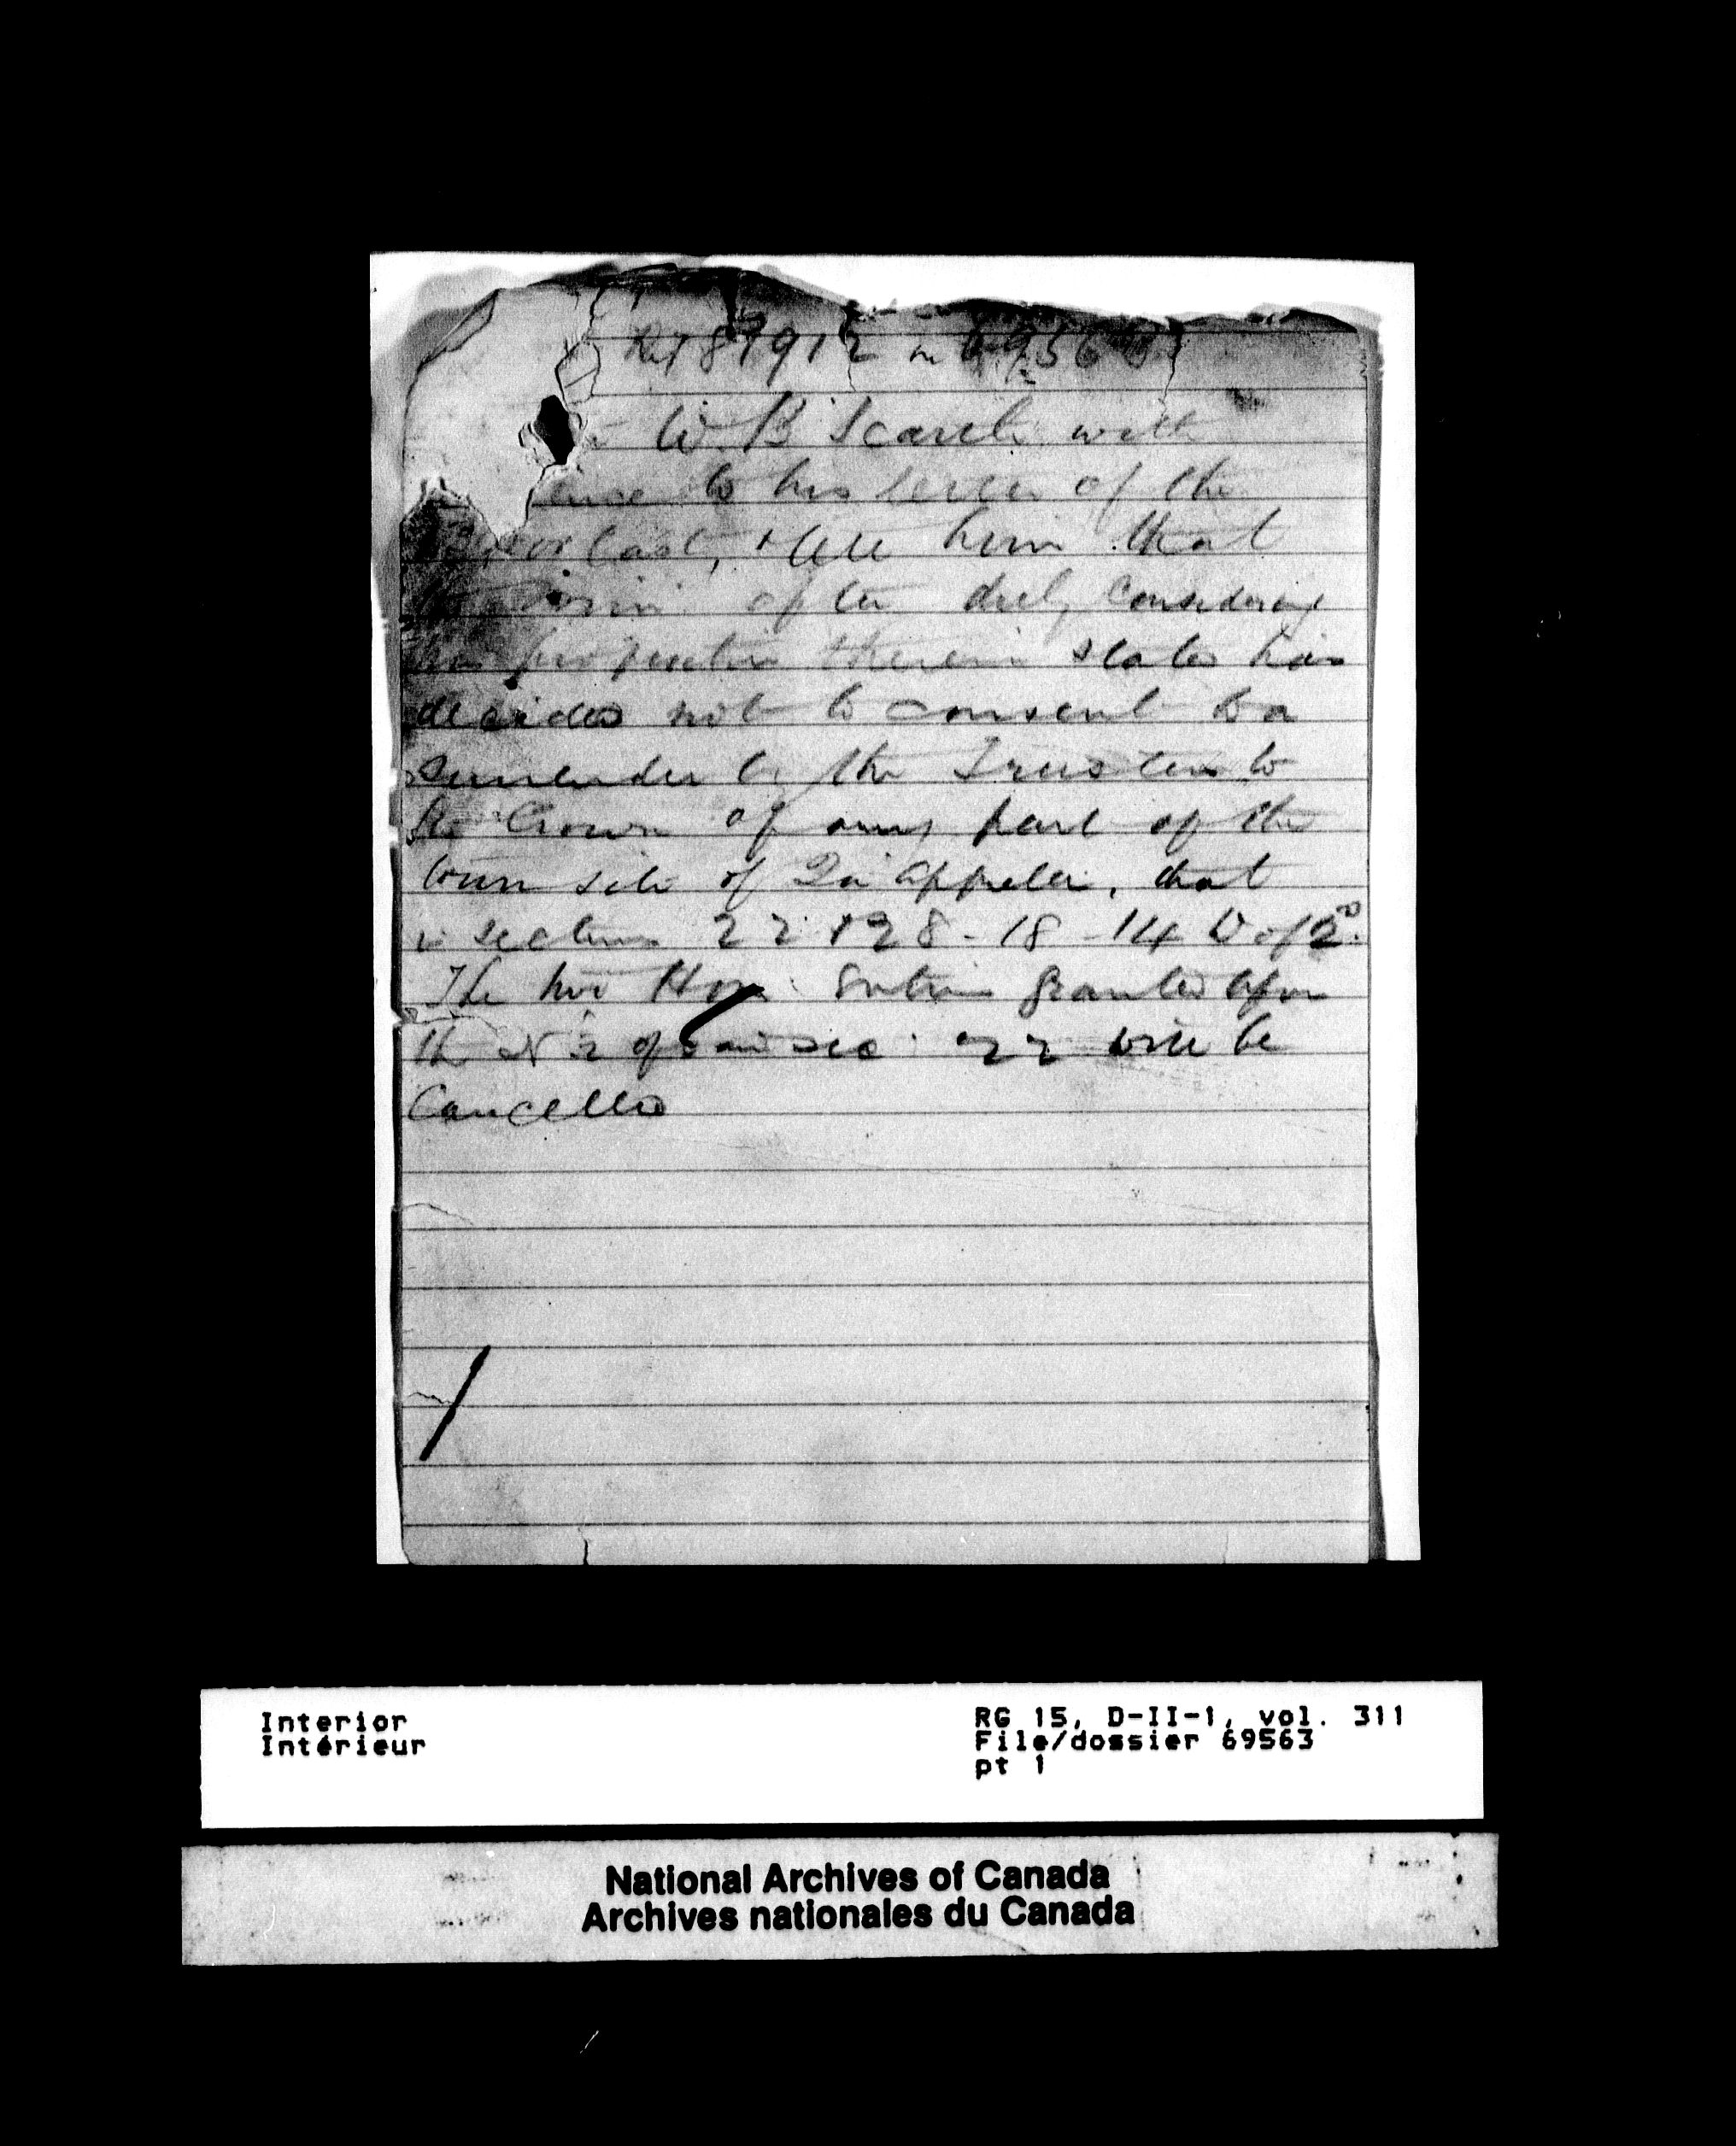 Ref 87912 on 69563
W. B Scarth with
ence to his letter of the
last, & tell him that
after duly considering
his proposition therein stated has
decided not to consent to a
surrender by the Trustees to
the Crown of any part of the
town site of Qu'appelle, that
is sections 22 & 28 - 18 - 14 W of 2nd.
The two Hom entries granted upon
the N ½ of said sec 22 will be
Cancelled
Interior
Intérieur
RG 15, D-II-1, vol. 311
File/dossier 69563
pt 1
National Archives of Canada
Archives nationales du Canada